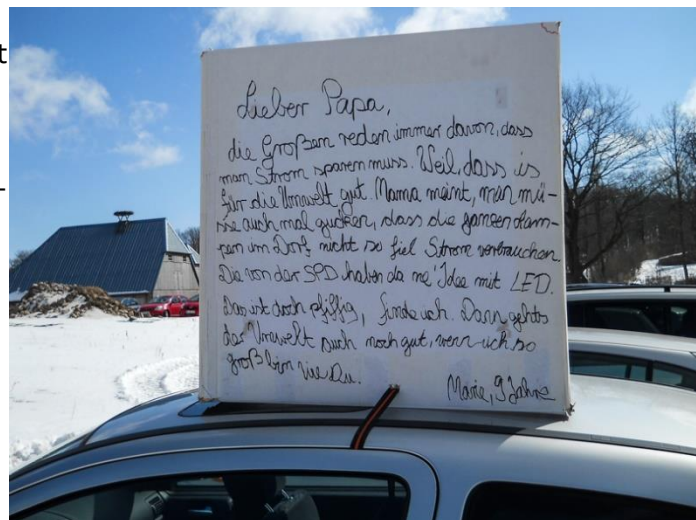 t
-
Lieber Papa,
die Großen reden immer davon, dass
man Strom sparen muss. Weil, dass is
für die Umwelt gut. Mama meint, man mü-
sse auch mal gucken, dass die ganzen Lam-
pen im Dorf nicht so fiel Strom verbrauchen.
Die von der SPD haben da ne' Idee mit LED.
Das ist doch pfiffig, finde ich. Dann gehts
der Umwelt auch noch gut, wenn ich so
groß bin wie Du.
Marie, 9 Jahre